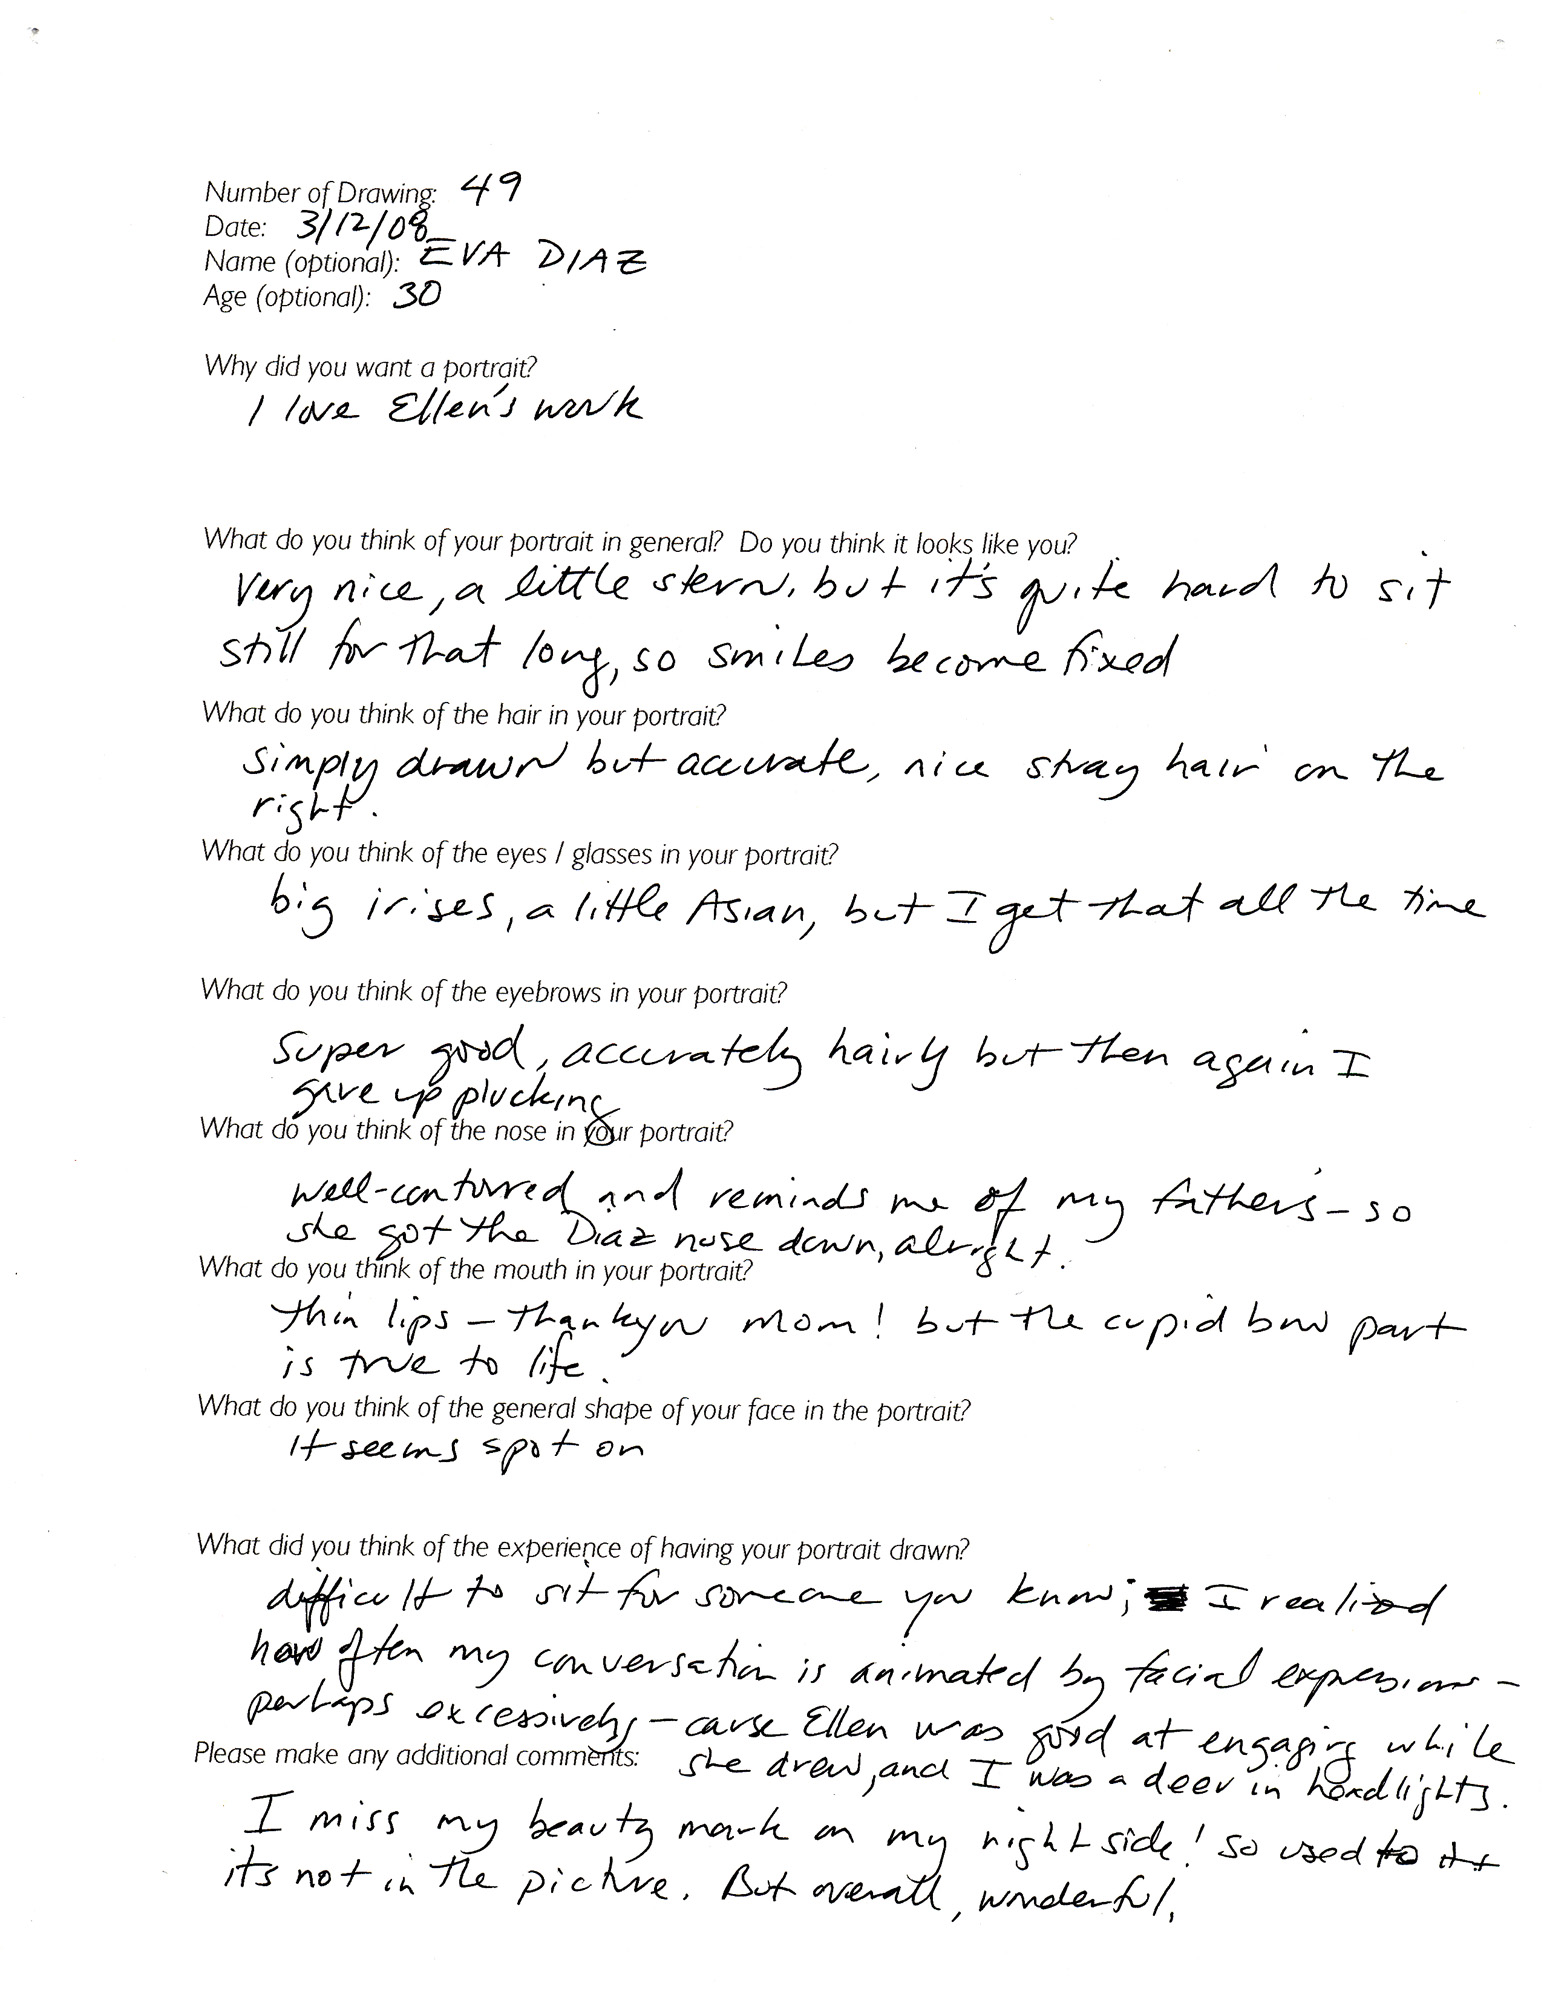 Number of Drawing: 49
Date: 3/12/08
Name (optional): EVA DIAZ
Age (optional): 30
Why did you want a portrait?
I love Ellen's work
What do you think of your portrait in general? Do you think it looks like you?
Very nice, a little stern, but it's quite hard to sit
still for that long, so smiles become fixed
What do you think of the hair in your portrait?
simply drawn but accurate, nice stray hair on the
right.
What do you think of the eyes / glasses in your portrait?
big irises, a little Asian, but I get that all the time
What do you think of the eyebrows in your portrait?
Super good, accurately hairly but then again I
gave up plucking
What do you think of the nose in your portrait?
well-conturred and reminds me of my father's – so
she got the Diaz nose down, alright.
What do you think of the mouth in your portrait?
thin lips – thank you mom! but the cupid bow part
is true to life.
What do you think of the general shape of your face in the portrait?
It seems spot on
What did you think of the experience of having your portrait drawn?
difficult to sit for someone you know; I realized
how often my conversation is animated by facial expressions –
perhaps excessively – cause Ellen was good at engaging while
she drew, and I was a deer in headlights.
Please make any additional comments:
I miss my beauty mark on my right side! So used to it
it's not in the picture. But overall, wonderful.